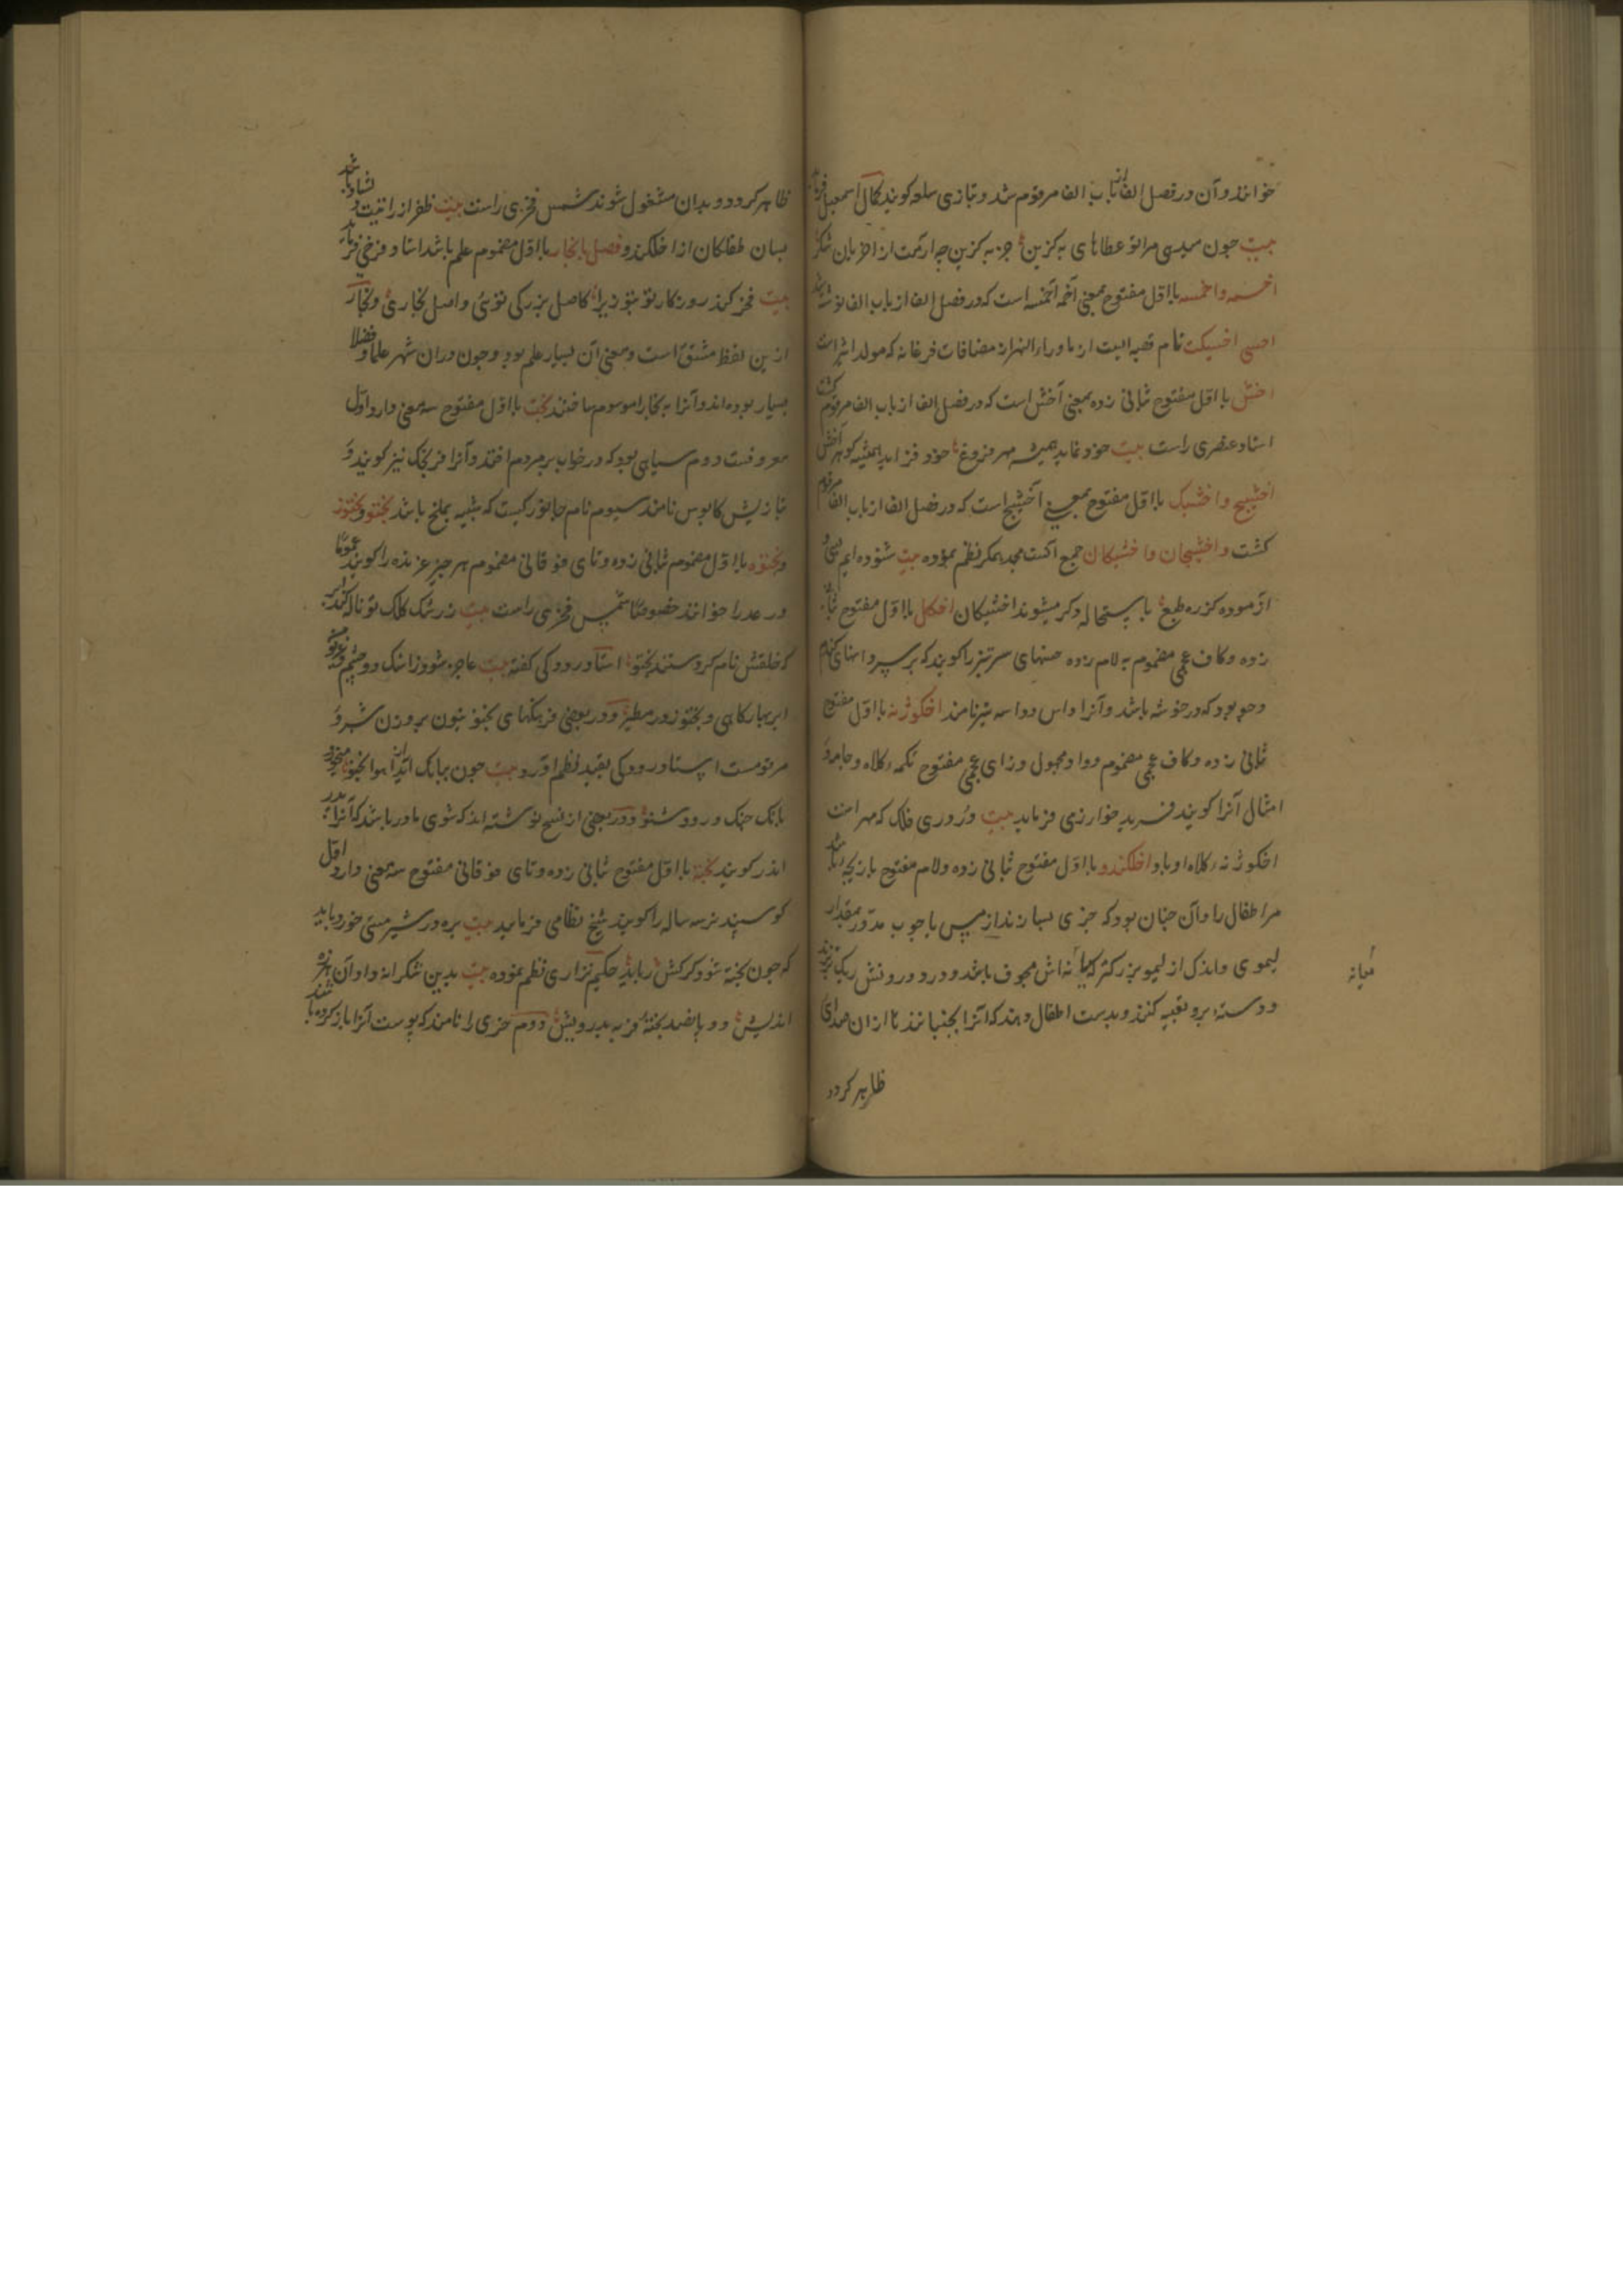 خوانند و آن در فصل الف از باب الف مرقوم شد و بتازی سلعه کویند کمال اسمعیل فرماید
بیت چون میدهی مرا تو عطاهای به کزین جز به کزین چه ارمت از اخر بان شکر
اخسمه واخمسه با اول مفتوح بمعنی آخمه آخمسه است که در فصل الف از باب الف نوشته شد
اخسی اخسیکت نام قصبه ایست از ماوراء النهر از مضافات فرغانه که مولد اثیر است
اخش با اول مفتوح ثبانی زده بمعنی آخش است که در فصل الف از باب الف مرقوم کشت
استاد عنصری راست بیت خود نماید همیشه مهر فروغ خود فزاید همیشه کوهر اخش
اخشیج واخشیک با اول مفتوح بمعنی آخشیج است که در فصل الف از باب الف مرقوم
کشت واخشیجان واخشیکان جمع آنست مجد همکر نظم نموده بیت شنوده ایم
ازموده کزره طبع با ستحاله دکر میشوند اخشیکان اخکل با اول مفتوح ثبانی
زده وکاف عجمی مضموم به لام زده خسهای سر تیز را کویند که بر سر داسهای کندم
وجو بود که در خوشه باشد وآنرا داس وداسه نیز نامند اخکوژنه با اول مفتوح
ثبانی زده وکاف عجمی مضموم و واو مجهول وزای عجمی مفتوح تکمه کلاه وجامه و
امثال آنرا کویند فرید خوارزمی فرماید بیت دری فلک که مهر است
اخکوژنه کلاه او باد اخلکندو با اول مفتوح ثبانی زده ولام مفتوح بازیچه باشد
مر اطفال را وآن چنان بود که چیزی بسازند از مس یا چوب مدور بمقدار
لیموی واندک از لیمو بزرکتر که میانه اش مجوف باشد ودر درونش ریک بریزند
ودسته برو تعبیه کنند وبدست اطفال دهند که آنرا بجنبانند تا ازان صدای
میانه
ظاهر کردد
ظاهر کردد وبدان مشغول شوند شمس فخری راست بیت ظفر از رایتت
بسان طفلکان از اخلکندو فصل با بخار با اول مضموم علم باشد استاد فرخی فرماید
بیت فخر کند روزکار تو بتو زیرا کاصل بزرکی توئی واصل بخاری وبخارا
ازین لفظ مشتق است ومعنی آن بسیار علم بود وچون دران شهر علما وفضلا
بسیار بوده اند وآنرا به بخارا موسوم ساختند بخت با اول مفتوح سه معنی دارد اول
معروفست دوم سیاهی بود که در خواب بر مردم افتد وآنرا فرنجک نیز کویند و
بتازیش کابوس نامند سیوم نام جانورکیست که شبیه بملخ باشد بختو وبختور
وبختوه با اول مضموم ثبانی زده وتای فوقانی مضموم هر چیز غرنده را کویند عموما
ورعد را خوانند خصوصا شمس فخری راست بیت زرشک کلک تو نالد
که خلقش نام کردستند بختو استاد رودکی کفته بیت عاجز شود ز اشک دو چشم
ابر بهار کاهی وبختور در مطیر ودر بعضی فرهنکهای بخنو بنون بروزن
مرقومست استاد رودکی بقید نظم آورد بیت چون ببانک آمد از هوا بخنو
بانک چنک ورود شنو ودر بعضی از نسخ نوشته اند که شوی مادر باشد که آنرا پدر
اندر کویند بخته با اول مفتوح ثبانی زده وتای فوقانی مفتوح سه معنی دارد اول
کوسپند نر سه ساله را کویند شیخ نظامی فرماید بیت بره در شیر مستی خورد باید
که چون بخته شود کرکش رباید حکیم نزاری نظم نموده بیت بدین شکرانه دادان
اندیش دو پانصد بخته فربه بدرویش دوم چیزی را نامند که پوست آنرا باز کرده باشند